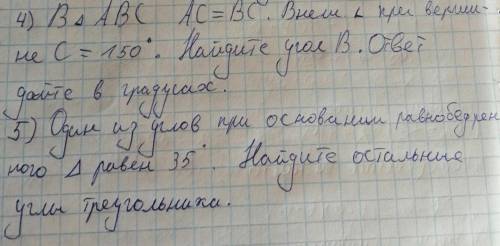 4) В △ ABC AC=BC. Внеш ∠ при верши-
не C = 150°. Найдите угол B. Ответ
дайте в градусах.
5) Один из углов при основании равнобедрен
ного △ равен 35°. Найдите остальные
углы треугольника.